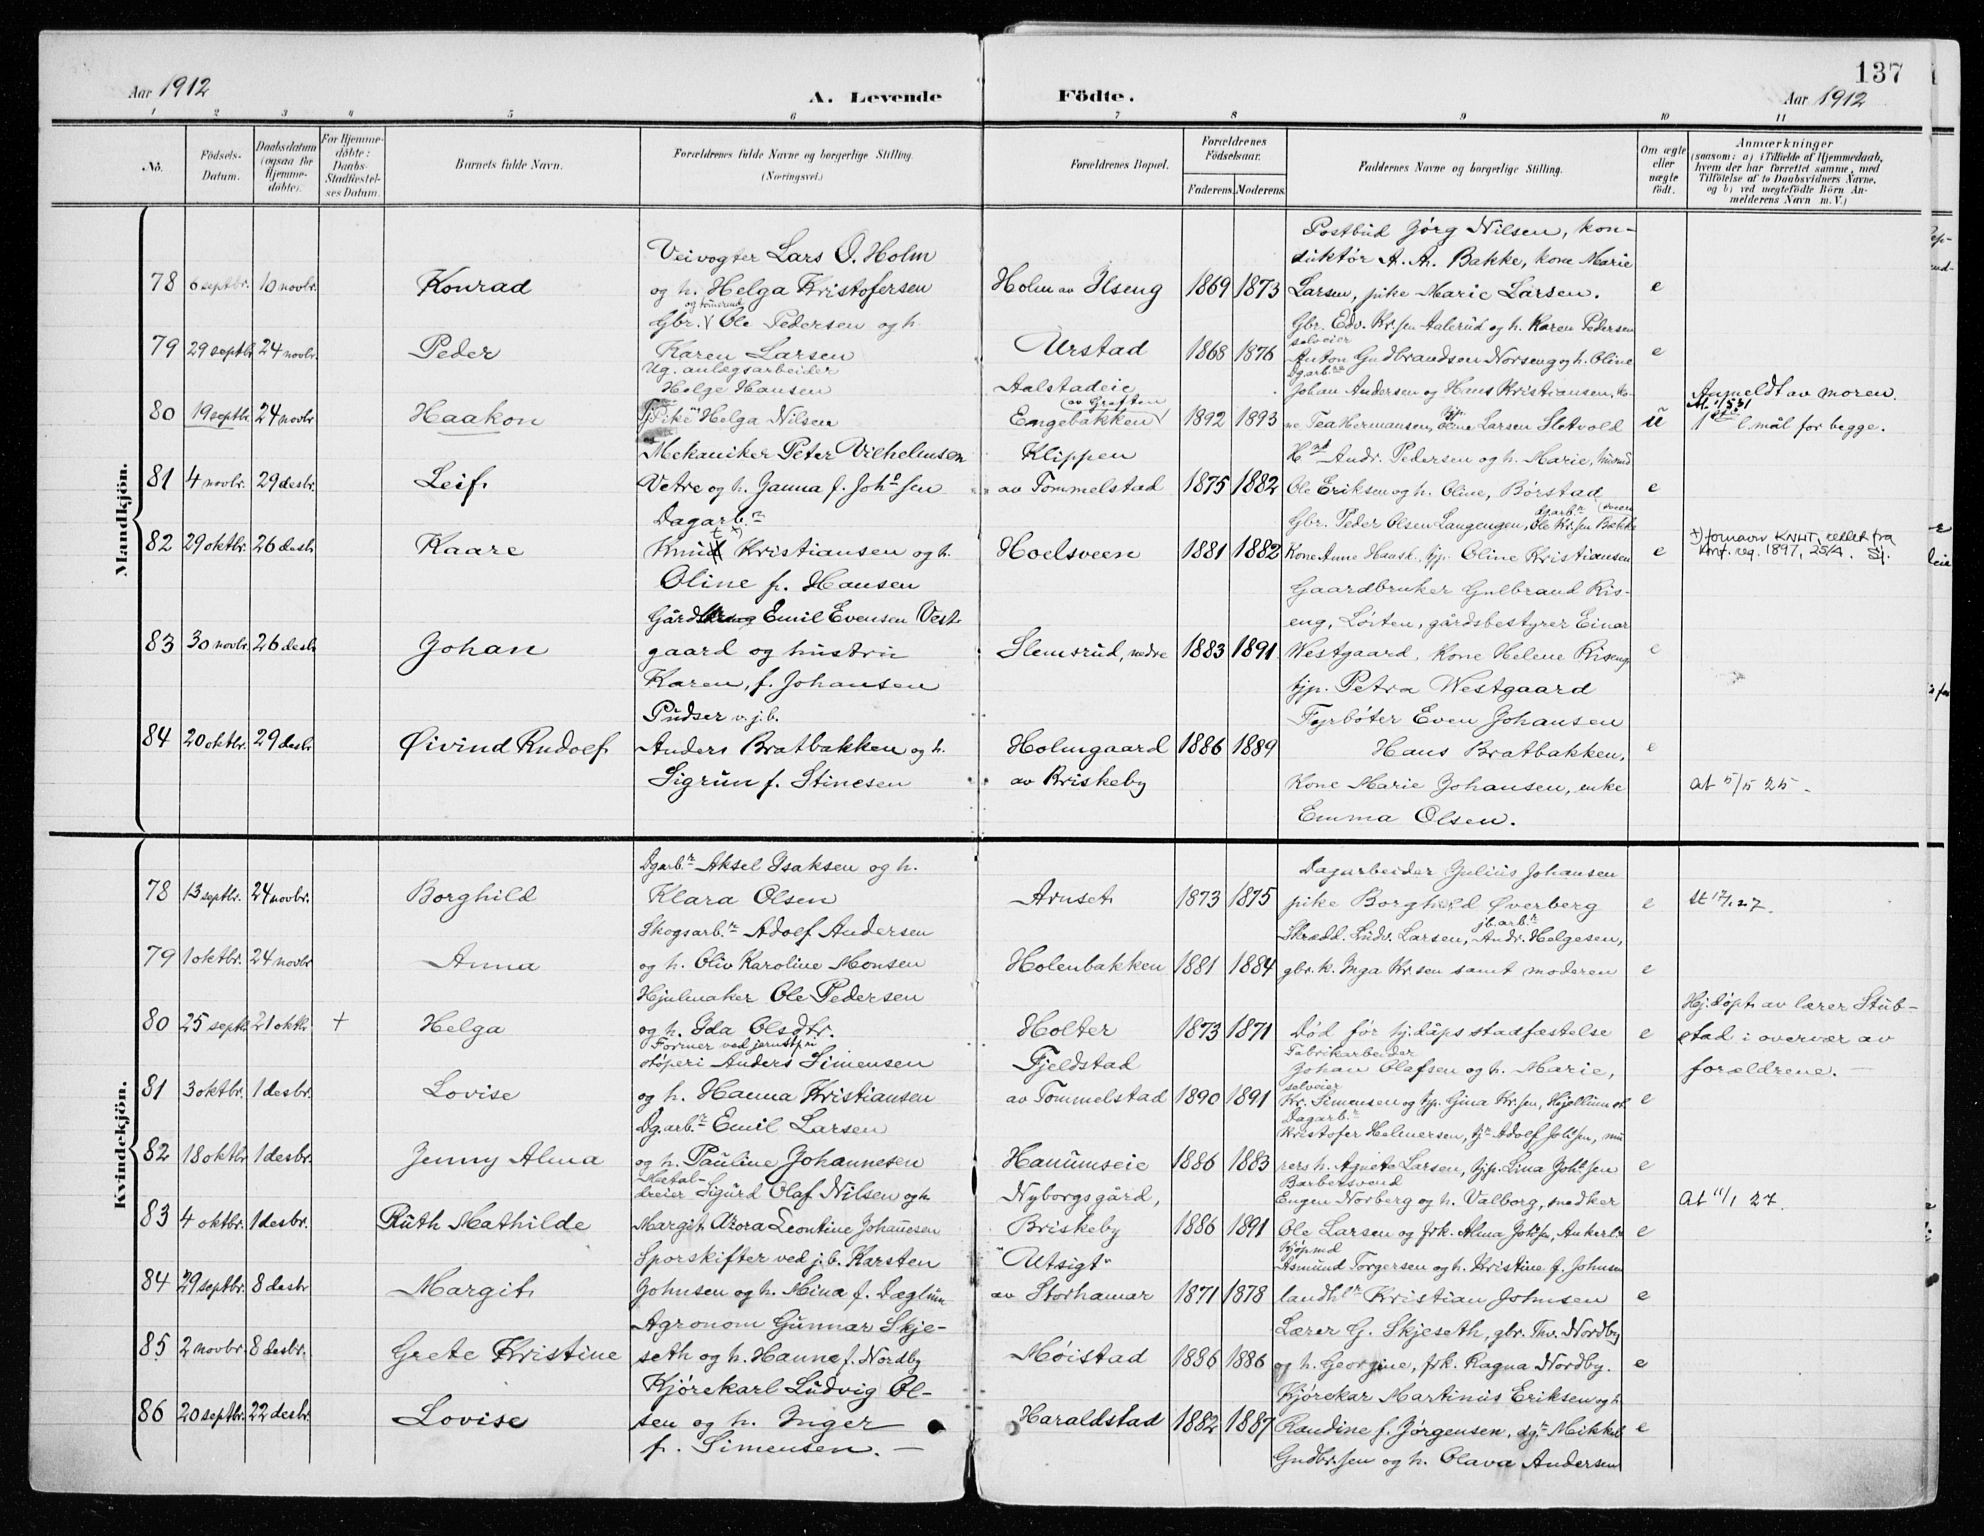 137
Aar 1912
A. Levende Födte.
Aar 1912
1 2 3 4 5 6 7 8 9 10 11
No. Födsels-Datum. Daabsdatum (ogsaa for Hjemme-döbte). For Hjemme-döbte: Daabs-Stadfæstel-ses Datum. Barnets fulde Navn. Forældrenes fulde Navne og borgerlige Stilling. (Næringsvei.) Forældrenes Bopæl. Forældrenes Födselsaar. Faderens. Moderens. Faddernes Navne og borgerlige Stilling. Om ægte eller uægte födt. Anmærkninger (saasom: a) i Tilfælde af Hjemmedaab, hvem der har forrettet samme, med Tilföielse af to Daabsvidners Navne, og b) ved uegtefödte Börn An-melderens Navn m. V.)
Mandkjön.
Postbud Jørg Nilsen, kon-
Veivogter Lars O. Holm
duktør A. A. Bakke, kone Marie
78 6 septbr. 10 novbr. Konrad og h. Helga Kristofersen Holm av Ilseng 1869 1873 Larsen, pike Marie Larsen. e
og tømmermd
Gbr. Ole Pedersen og h. Gbr. Edv. Kr.sen Aalerud og h. Karen Pedersen
selveier
79 29 septbr. 24 novbr. Peder Karen Larsen Urstad 1868 1876 Anton Gudbrandsen Norseng og h. Oline e
Ug. anlægsarbeider Dgarb.
Helge Hansen Aalstadeie Johan Andersen og Hans Kristiansen, ko- Anmeldt av moren.
av Graften
80 19 septbr. 24 novbr. Haakon Pike Helga Nilsen Engebakken 1892 1893 ne Tea Hermansen, Oline Larsen Sletvold u l. mål for begge.
Mekaniker Peter Vilhelmsen Klippen Andr. Pedersen og h. Marie,
81 4 novbr. 29 desbr. Leif Vetre og h. Janna f. Joh.sen av Tommelstad 1875 1882 Ole Eriksen og h. Oline, Børstad e
Dagarb. Gbr. Peder Olsen Langengen, Ole Kr.sen Bakke
82 29 oktbr. 26 desbr. Kaare Knut Kristiansen og h. Hoelsveen 1881 1882 Kone Anne Hansd., tjp. Oline Kristiansen e x) fornavn KNUT, rettet fra
konf. reg. 1897, 25/4. Sj.
Oline f. Hansen Gaardbruker Gulbrand Ris-
Emil Evensen Vest- eng, Løiten, gårdsbestyrer Einar
83 30 novbr. 26 desbr. Johan gaard og hustru Slemsrud, nedre 1883 1891 Westgaard, Kone Helene Riseng e
Karen, f. Johansen tjp. Petra Westgaard
Pudser v. j.b. Fyrbøter Even Johansen
84 20 oktbr. 29 desbr. Øivind Rudolf Anders Bratbakken og h. Holmgaard 1886 1889 Hans Bratbakken, e
Sigrun f. Stinesen av Briskeby Kone Marie Johansen, enke at 5/5 25.
Emma Olsen.
Kvindekjön.
Dgarb. Aksel Isaksen og h. Dagarbeider Julius Johansen
78 13 septbr. 24 novbr. Borghild Klara Olsen Arnset 1873 1875 pike Borghild Øverberg e
Skogsarb. Adolf Andersen jb.arb.
Skrædd. Ludv. Larsen, Andr. Helgesen,
79 1 oktbr. 24 novbr. Anna og h. Oliv Karoline Monsen Holenbakken 1881 1884 gbr.k. Inga Kr.sen samt moderen e
Hjulmaker Ole Pedersen Hj.døpt av lærer Stub-
80 25 septbr. 21 oktbr. + Helga og h. Ida Olsdtr. Holter 1873 1871 Død før hj.dåps stadfæstelse e stad i overvær av
Former ved jernstø- Fabrikarbeider
støperi Anders Simensen Fjeldstad Johan Olafsen og h. Marie, forældrene. —
selveier
81 3 oktbr. 1 desbr. Lovise og h. Hanna Kristiansen av Tommelstad 1890 1891 Kr. Simensen og tjp. Gina Kr.sen, Hjellum st. e
Dagarb.
Dg.arb. Emil Larsen Kristofer Helmersen, Adolf Joh.sen, mu-
82 18 oktbr. 1 desbr. Jenny Alma og h. Pauline Johannesen Hanumseie 1886 1883 rersh. Agnete Larsen, tjp. Lina Joh.sen e
Metal- Barbersvend
dreier Sigurd Olaf Nilsen og h. Nyborgsgård, Eugen Norberg og h. Valborg, snedker At 11/1 27.
83 4 oktbr. 1 desbr. Ruth Mathilde Margit Azora Leontine Johansen Briskeby 1886 1891 Ole Larsen og frk. Alma Joh.sen, e
Kjøpmd
Sporskifter ved j.b. Karsten "Utsigt" Asmund Torgersen og h. Kristine f. Johnsen
84 29 septbr. 8 desbr. Margit Johnsen og h. Mina f. av Storhamar 1871 1878 landh. Kristian Johnsen e
Agronom Gunnar Skje- Lærer G. Skjeseth, gbr. Thv. Nordby
85 2 novbr. 8 desbr. Grete Kristine seth og h. Hanna f. Nordby Møistad 1886 1886 og h. Georgine, frk. Ragna Nordby. e
Kjørekarl Ludvig Ol- Kjørekar Martinus Eriksen og h.
86 20 septbr. 22 desbr. Lovise sen og h. Inger Haraldstad 1882 1887 Randine f. Jørgensen, dg. Mikkel e
f. Simensen. — Gudbr.sen og h. Olava Andersen